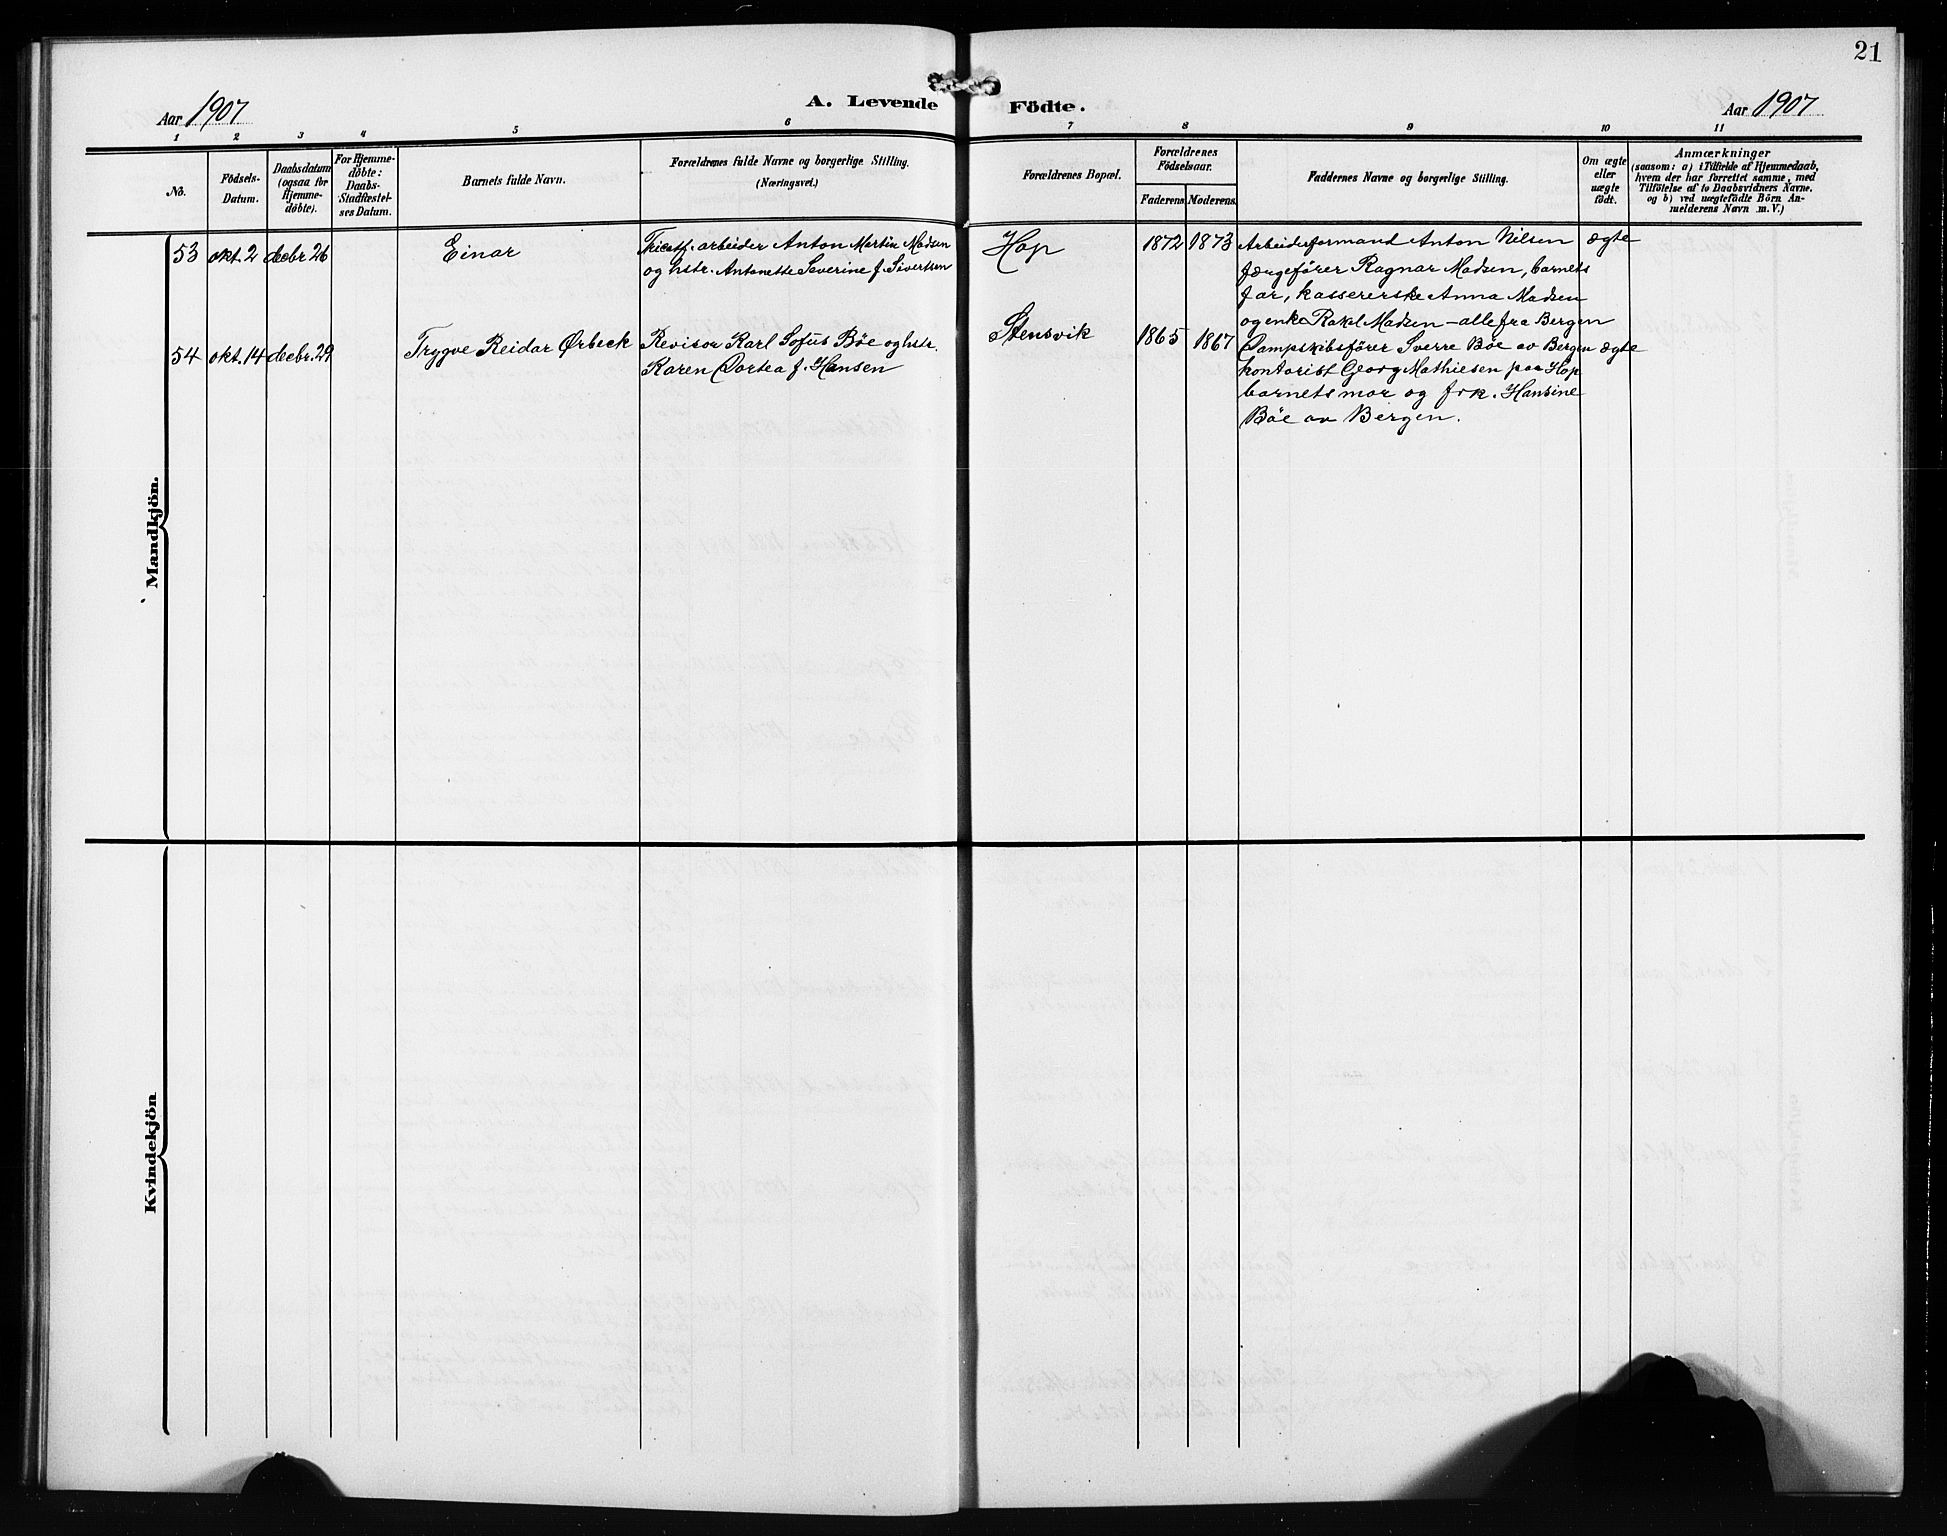 21
Aar 1907
A. Levende Födte.
Aar 1907
1 2 3 4 5 6 7 8 9 10 11
No.
Födsels-
Datum.
Daabsdatum
(ogsaa for
Hjemme-
döbte).
For Hjemme-
döbte:
Daabs-
Stadfæstel-
ses Datum.
Barnets fulde Navn.
Forældrenes fulde Navne og borgerlige Stilling.
(Næringsvei.)
Forældrenes Bopæl.
Forældrenes
Födselsaar.
Faderens Moderens.
Faddernes Navne og borgerlige Stilling.
Om ægte
eller
uægte
födt.
Anmærkninger
(saasom: a) i Tilfælde af Hjemmedaab,
hvem der har forrettet samme, med
Tilföielse af to Daabsvidners Navne.
og b) ved uægtefödte Börn An-
melderens Navn m. V.)
Mandkjön.
53 okt. 2 decbr 26
Einar
Tricotf. arbeider Anton Martin Madsen
og hstr. Antonette Severine f. Sivertsen
Hop
1872 1873
Arbeidsformand Anton Nilsen
færgefører Ragnar Madsen, barnets
far, kassererske Anna Madsen
og enke Rakel Madsen - alle fra Bergen
ægte
54 okt. 14 decbr. 29
Trygve Reidar Ørbeck
Revisor Karl Sofus Bøe og hstr.
Karen Dortea f. Hansen
Stensvik
1865 1867
Dampskibsfører Sverre Bøe av Bergen
kontorist Georg Mathiesen paa Hop
barnets mor og frk. Hansine
Bøe av Bergen.
ægte
Kvindekjön